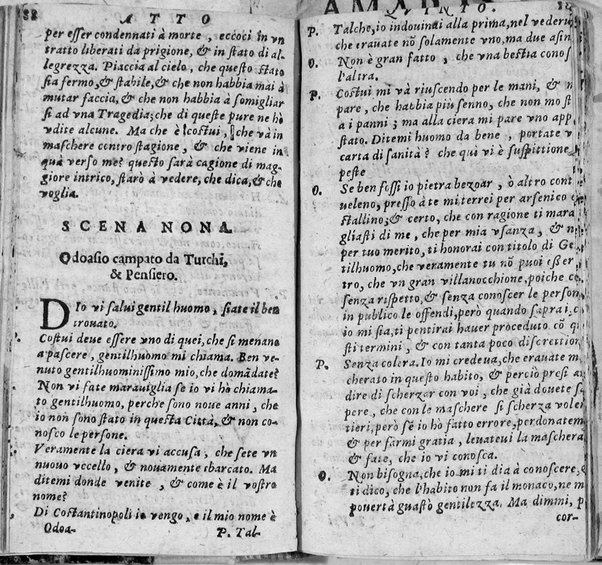 88
ATTO
per esser condennati à morte, eccoci in vn
tratto liberati da prigione, & in stato di al-
legrezza. Piaccia al cielo, che questo stato
sia fermo, & stabile, & che non habbia mai à
mutar faccia, & che non habbia à somigliar
si ad vna Tragedia; che di queste pure ne hò
vdite alcune. Ma che è costui, che và in
maschere contro stagione, & che viene in
quà verso me? questo sarà cagione di mag-
giore intrico, starò à vedere, che dica, & che
voglia.
SCENA NONA.
Odoasio campato da Turchi,
& Pensiero.
DIo vi salui gentil huomo, siate il ben
trouato.
Costui deue essere vno di quei, che si menano
a pascere, gentilhuomo mi chiama. Ben ve-
nuto gentilhuominissimo mio, che domãdate?
Non vi fate marauiglia se io vi hò chiama-
to gentilhuomo, perche sono noue anni, che
io non sono stato in questa Città, & non co-
nosco le persone.
Veramente la ciera vi accusa, che sete vn
nuouo vccello, & nouamente sbarcato. Ma
ditemi donde venite, & come è il vostro
nome?
Di Costantinopoli io vengo, e il mio nome è
Odoa-
P. Tal-
QVINTO.
P. Talche, io indouinai alla prima, nel vederui
che erauate nõ solamente vno, ma due asin
O. Non è gran fatto, che vna bestia conos
l'altra.
P. Costui mi và riuscendo per le mani, &
pare, che habbia più senno, che non mo st
a i panni; ma alla ciera mi pare vno app
stato. Ditemi huomo da bene, portate v
carta di sanità? che quì vi è suspittione
peste
O. Se ben fossi io pietra bezoar, ò altro cont
ueleno, presso à te mi terrei per arsenico
stallino; & certo, che con ragione ti mara
gliasti di me, che per mia vsanza, & n
per tuo merito, ti honorai con titolo di Ge
tilhuomo, che veramente tu nõ puoi esser
tro, che vn gran villanocchione, poiche
senza rispetto, & senza conoscer le person
in publico le offendi, però quando saprai, c
io mi sia, ti pentirai hauer proceduto cõ q
sti termini, & con tanta poco discrettion
P. Senza colera. Io mi credeua, che erauate m
cherato in questo habito, & perciò presi a
dire di scherzar con voi, che già douete s
pere, che con le maschere si scherza volen
tieri, però se iò hò fatto errore, perdonatem
& per farmi gratia, leuateui la maschera
& fate, che io vi conosca.
O. Non bisogna, che io mi ti dia à conoscere,
ti dico, che l'habito non fa il monaco, ne
pouertà guastò gentilezza. Ma dimmi,
cor-